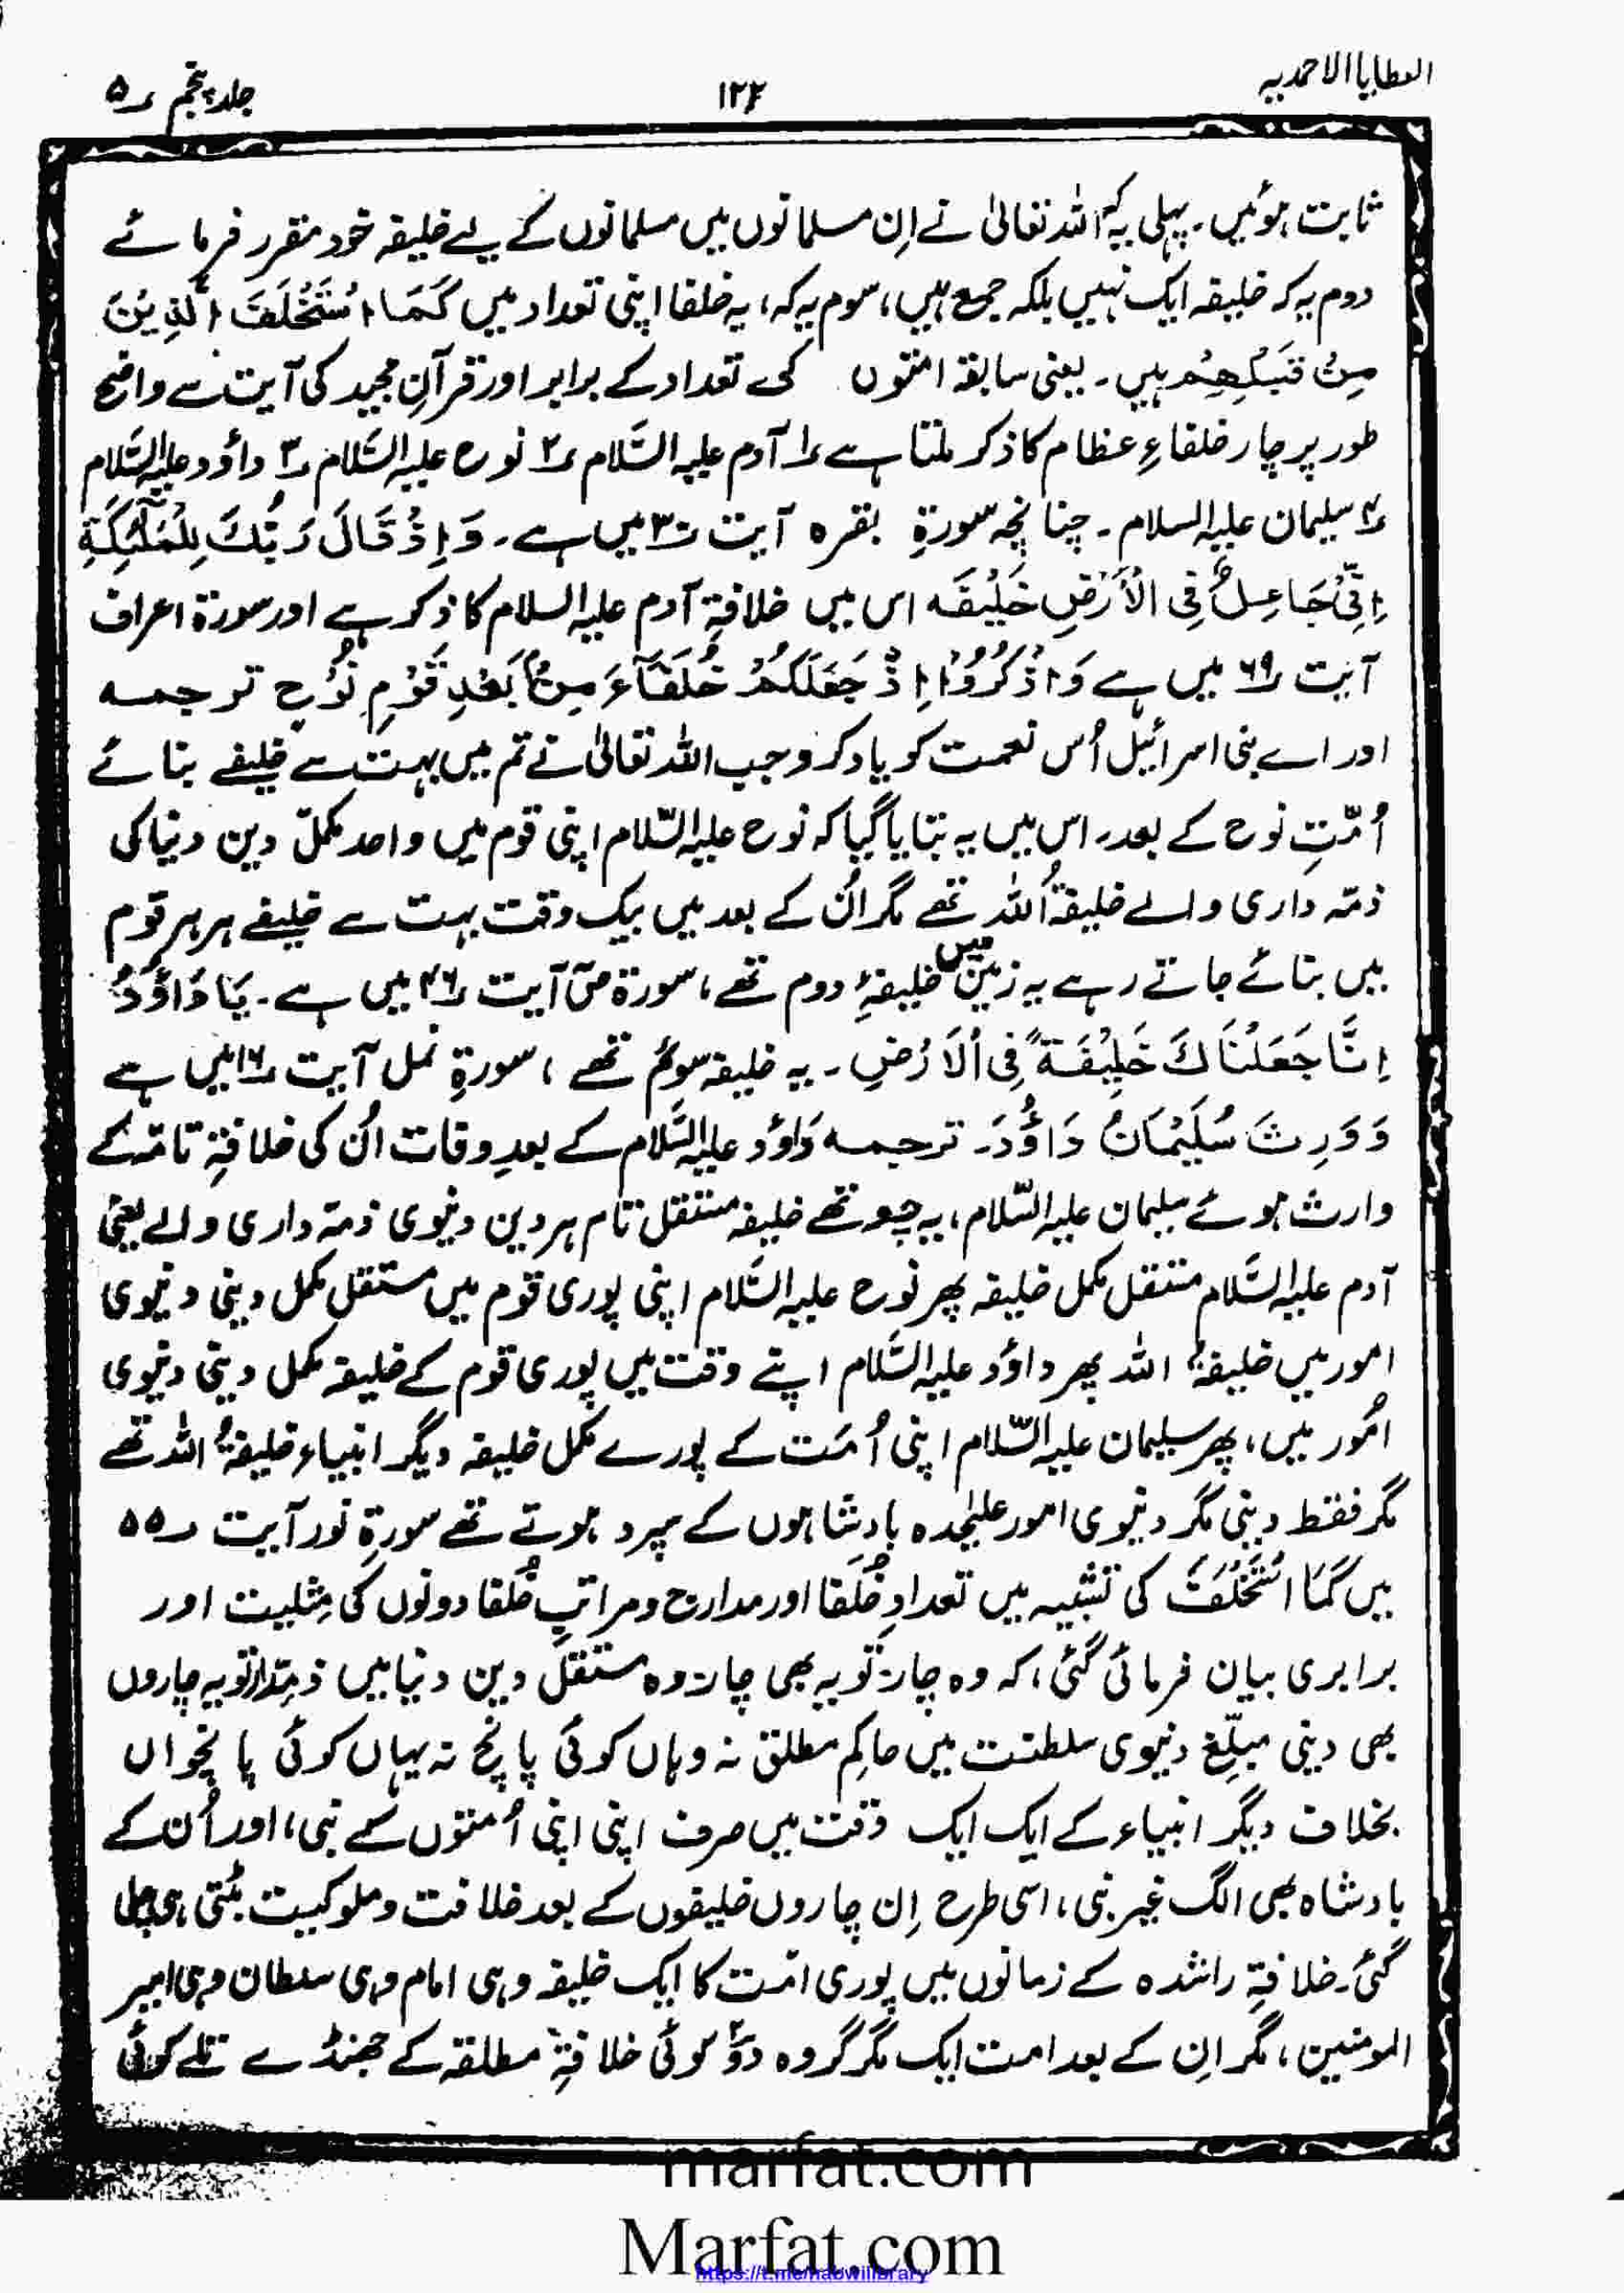 العطایا الاحمدیہ
۱۲۲
جلد پنجم ؍۵
ثابت ہوئیں۔ پہلی یہ کہ اللہ تعالیٰ نے اِن مسلمانوں میں مسلمانوں کے لیے خلیفہ خود مقرر فرمائے
دوم یہ کہ خلیفہ ایک نہیں بلکہ جمع ہیں، سوم یہ کہ، یہ خلفا اپنی تعداد میں کَمَا اسْتَخْلَفَ الَّذِیْنَ
مِنْ قَبْلِھِمْ ہیں۔ یعنی سابقہ امتوں کی تعداد کے برابر اور قرآنِ مجید کی آیت سے واضح
طور پر چار خلفاءِ عظام کا ذکر ملتا ہے ؍۱ آدم علیہ السَّلام ؍۲ نوح علیہ السَّلام ؍۳ داؤد علیہ السَّلام
؍۴ سلیمان علیہ السلام۔ چنانچہ سورۃِ بقرہ آیت ؍۳۰ میں ہے۔ وَاِذْ قَالَ رَبُّکَ لِلْمَلٰٓئِکَۃِ
اِنِّیْ جَاعِلٌ فِی الْاَرْضِ خَلِیْفَہ اس میں خلافۃِ آدم علیہ السلام کا ذکر ہے اور سورۃ اعراف
آیت ؍۶۹ میں ہے وَاذْکُرُوْا اِذْ جَعَلَکُمْ خُلَفَآءَ مِنْۢ بَعْدِ قَوْمِ نُوْحٍ ترجمہ
اور اے بنی اسرائیل اُس نعمت کو یاد کرو جب اللہ تعالیٰ نے تم میں بہت سے خلیفے بنائے
اُمّتِ نوح کے بعد۔ اس میں یہ بتایا گیا کہ نوح علیہ السّلام اپنی قوم میں واحد مکمل دین دنیا کی
ذمّہ داری والے خلیفۃُ اللہ تھے مگر اُن کے بعد میں بیک وقت بہت سے خلیفے ہر ہر قوم
میں بنائے جاتے رہے یہ زمین میں خلیفۂِ دوم تھے، سورۃ صٓ آیت ؍۲۶ میں ہے۔ یَا دَاوٗدُ
اِنَّا جَعَلْنَاکَ خَلِیْفَۃً فِی الْاَرْضِ۔ یہ خلیفہ سوئم تھے، سورۃِ نمل آیت ؍۱۶ میں ہے
وَوَرِثَ سُلَیْمَانُ دَاوٗدَ۔ ترجمہ دَاوٗد علیہ السَّلام کے بعدِ وفات اُن کی خلافۃِ تامّہ کے
وارث ہوئے سلیمان علیہ السّلام، یہ چوتھے خلیفہ مستقل تام ہر دین دنیوی ذمّہ داری والے یعنی
آدم علیہ السَّلام مستقل مکمل خلیفہ پھر نوح علیہ السَّلام اپنی پوری قوم میں مستقل مکمل دینی دنیوی
امور میں خلیفۃُ اللہ پھر داؤد علیہ السَّلام اپنے وقت میں پوری قوم کے خلیفہ مکمل دینی دنیوی
اُمُور میں، پھر سلیمان علیہ السّلام اپنی اُمّت کے پورے مکمل خلیفہ دیگر انبیاء خلیفۃُ اللہ تھے
مگر فقط دینی مگر دنیوی امور علیٰحدہ بادشاہوں کے سپرد ہوتے تھے سورۃِ نور آیت ؍۵۵
میں کَمَا اسْتَخْلَفَ کی تشبیہ میں تعدادِ خُلَفا اور مدارج و مراتبِ خُلفا دونوں کی مِثلیت اور
برابری بیان فرمائی گئی، کہ وہ چار تو یہ بھی چار، وہ مستقل دین دنیا میں ذمّہ دار تو یہ چاروں
بھی دینی مبلّغ دنیوی سلطنت میں حاکِم مطلق نہ وہاں کوئی پانچ نہ یہاں کوئی پانچواں
بخلاف دیگر انبیاء کے ایک ایک وقت میں صرف اپنی اپنی اُمتوں کے نبی، اور اُن کے
بادشاہ بھی الگ غیر نبی، اسی طرح اِن چاروں خلیفوں کے بعد خلافت و ملوکیت بٹتی ہی چلی
گئی۔ خلافۃِ راشدہ کے زمانوں میں پوری امّت کا ایک خلیفہ وہی امام وہی سلطان وہی امیر
المومنین، مگر اِن کے بعد امت ایک مگر گروہ دوؔ کوئی خلافۃِ مطلقہ کے جھنڈے تلے کوئی
marfat.com
Marfat.com
https://t.me/nabwilibrary